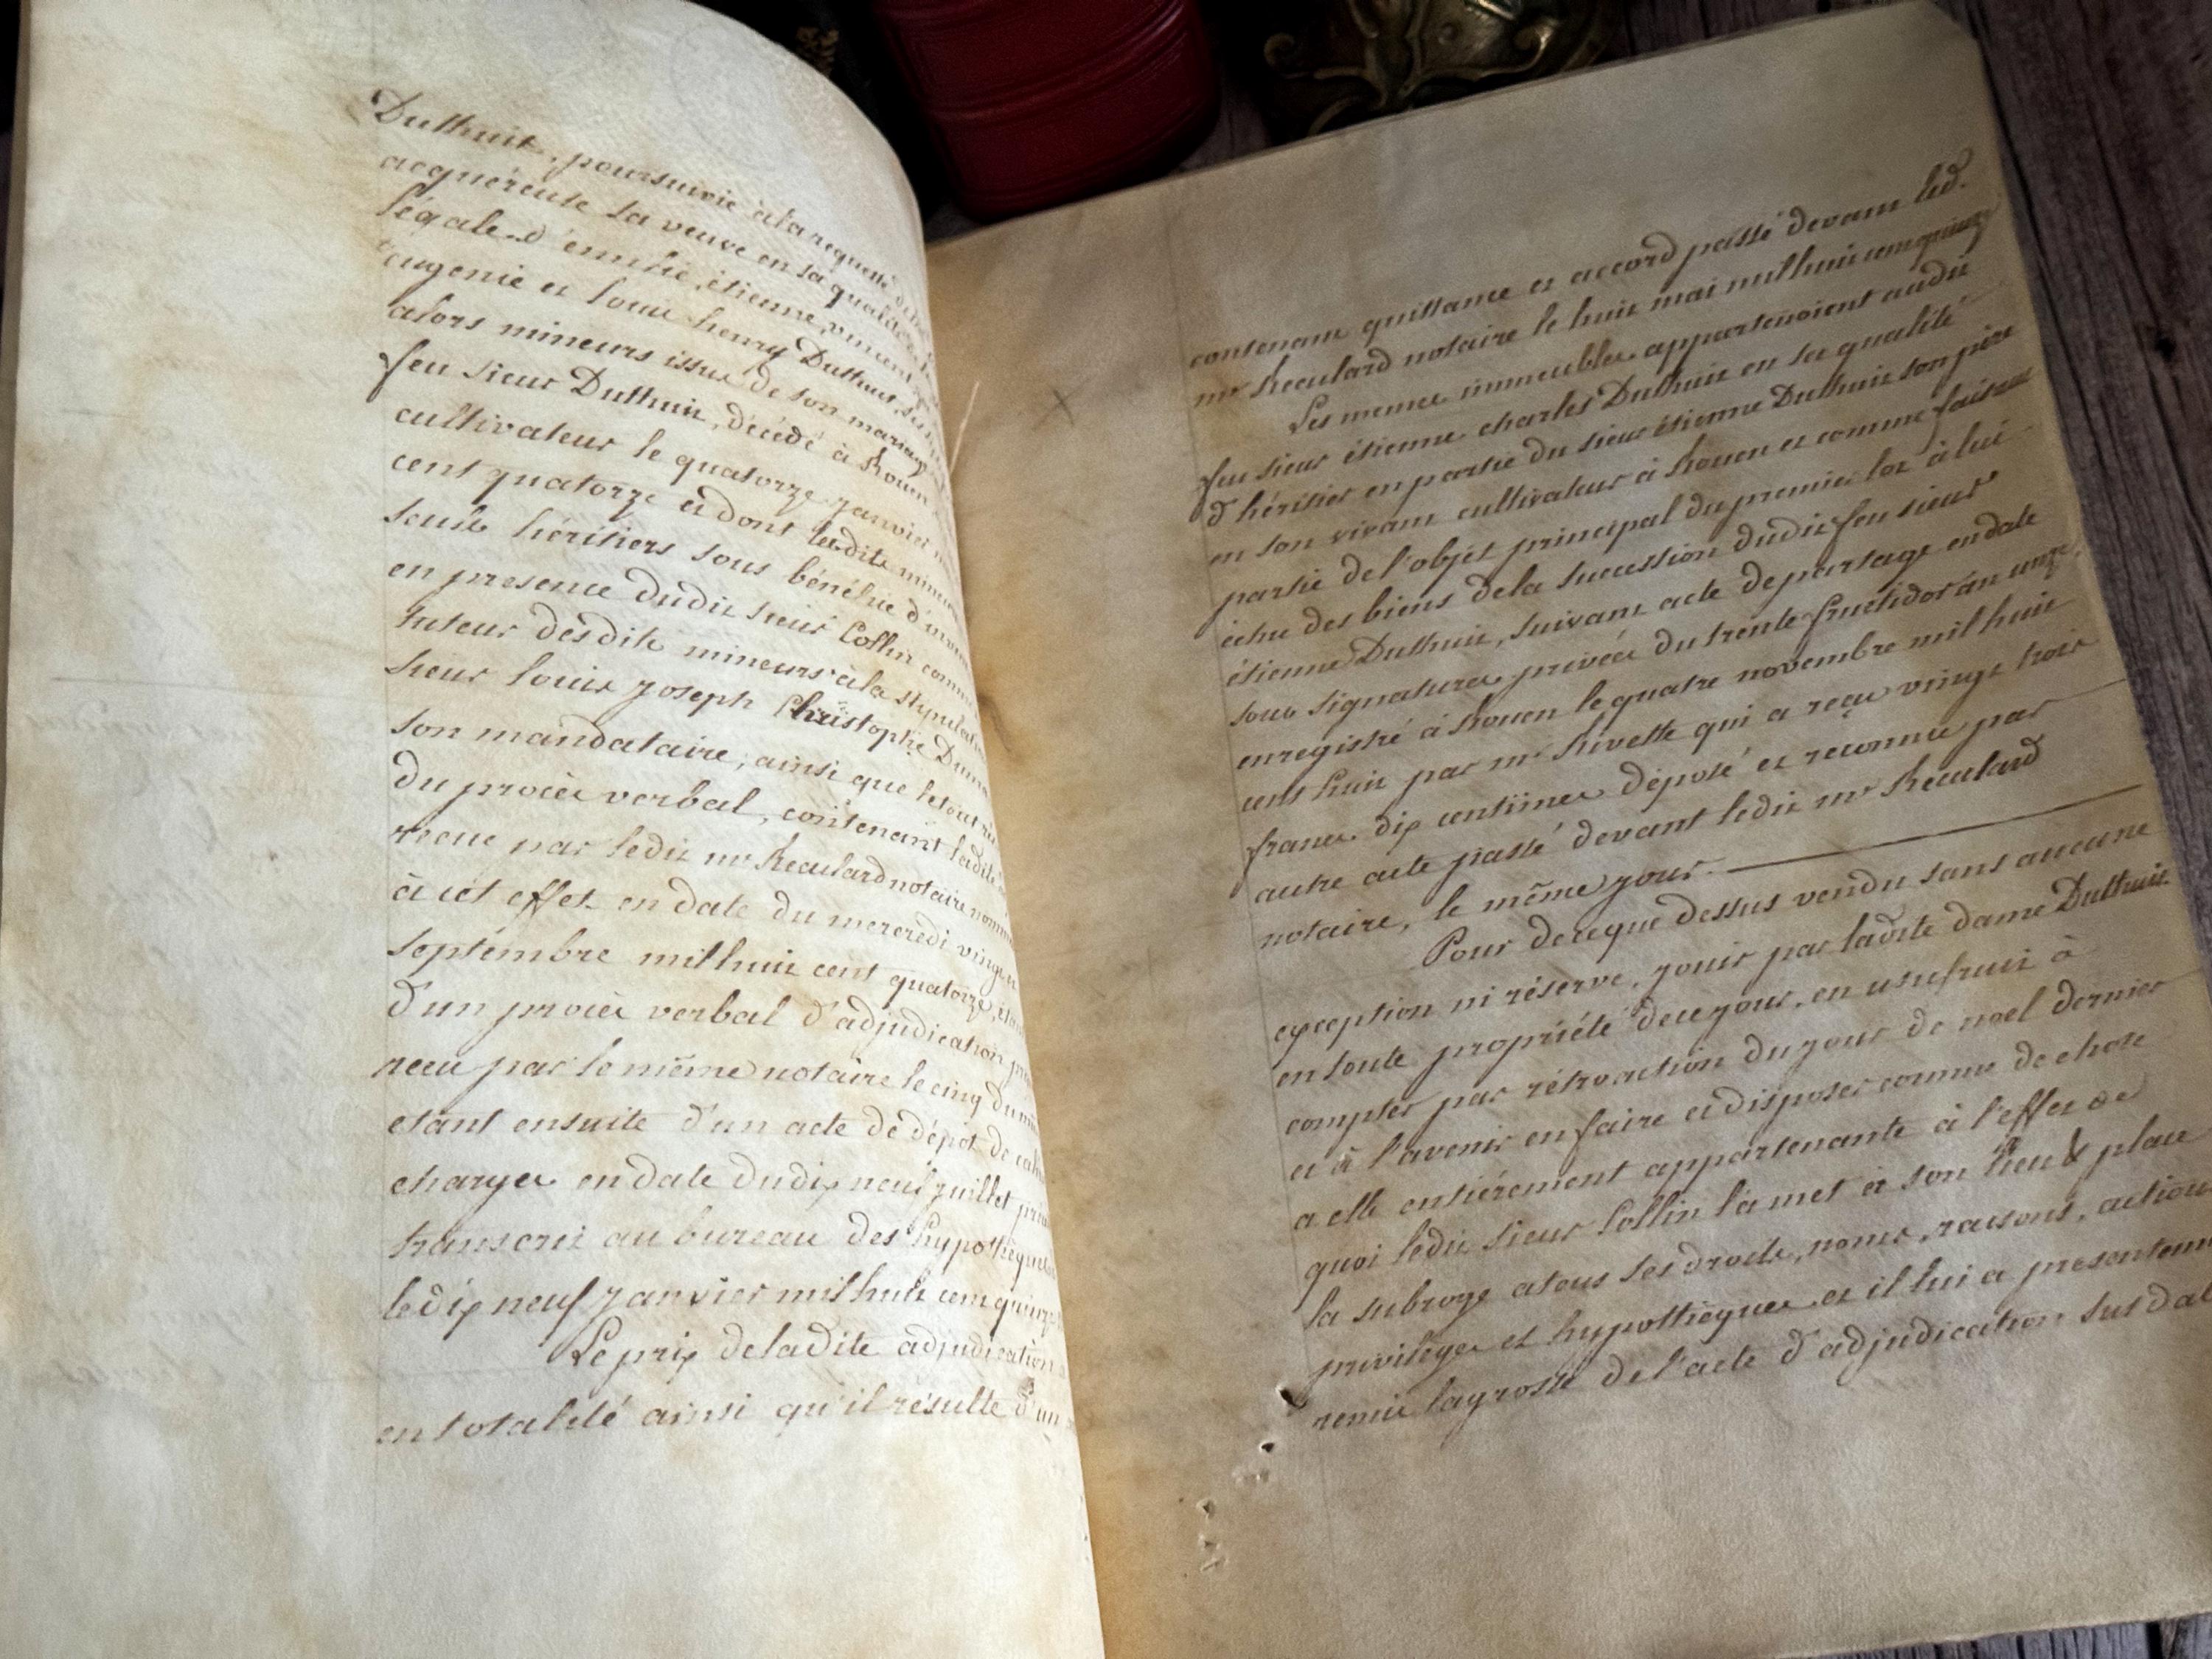 Duthuit, poursuivie à la requête
acquéreuse sa veuve en sa qualité
légale d'emilie, étienne, vincent
eugenie et louis henry Duthuit
alors mineurs issus de son mariage
feu sieur Duthuit, décédé à Rouen
cultivateur le quatorze janvier
cent quatorze et dont lesdits mineurs
seuls héritiers sous bénéfice d'
en presence dudit sieur Collin comme
tuteur desdits mineurs à la
sieur louis joseph Christophe
son mandataire, ainsi que le tout
du procès verbal, contenant ladite
recue par ledit mr Reculard notaire
à cet effet en date du mercredi vingt
septembre mil huit cent quatorze,
d'un procès verbal d'adjudication
recu par le même notaire le cinq du
etant ensuite d'un acte de dépot de
charges en date du dix neuf juillet
transcrit au bureau des hypothèques
le dix neuf janvier mil huit cent quinze
Le prix de ladite adjudication
en totalité ainsi qu'il résulte d'un
contenant quittance et accord passé devant led.
mr Reculard notaire le huit mai mil huit cent quinze
Les memes immeubles appartenoient audit
feu sieur étienne charles Duthuit en sa qualité
d'héritier en partie du sieur étienne Duthuit son père
en son vivant cultivateur à Rouen et comme faisant
partie de l'objet principal du premier lot à lui
échu des biens de la succession dudit feu sieur
étienne Duthuit, suivant acte de partage en date
sous signatures privées du trente fructidor an onze,
enregistré à Rouen le quatre novembre mil huit
cent huit par mr Rivette qui a reçu vingt trois
francs dix centimes déposé et reconnu par
autre acte passé devant ledit mr Reculard
notaire, le même jour.
Pour de ce que dessus vendu sans aucune
exception ni réserve, jouir par ladite dame Duthuit
en toute propriété de ce jour, en usufruit à
compter par rétroaction du jour de noel dernier
et à l'avenir en faire et disposer comme de chose
a elle entiérement appartenante à l'effet de
quoi ledit sieur Collin la met à son lieu & place
la subroge a tous ses droits, noms, raisons, actions
privileges et hypothèques et il lui a presentement
remis la grosse de l'acte d'adjudication sus daté